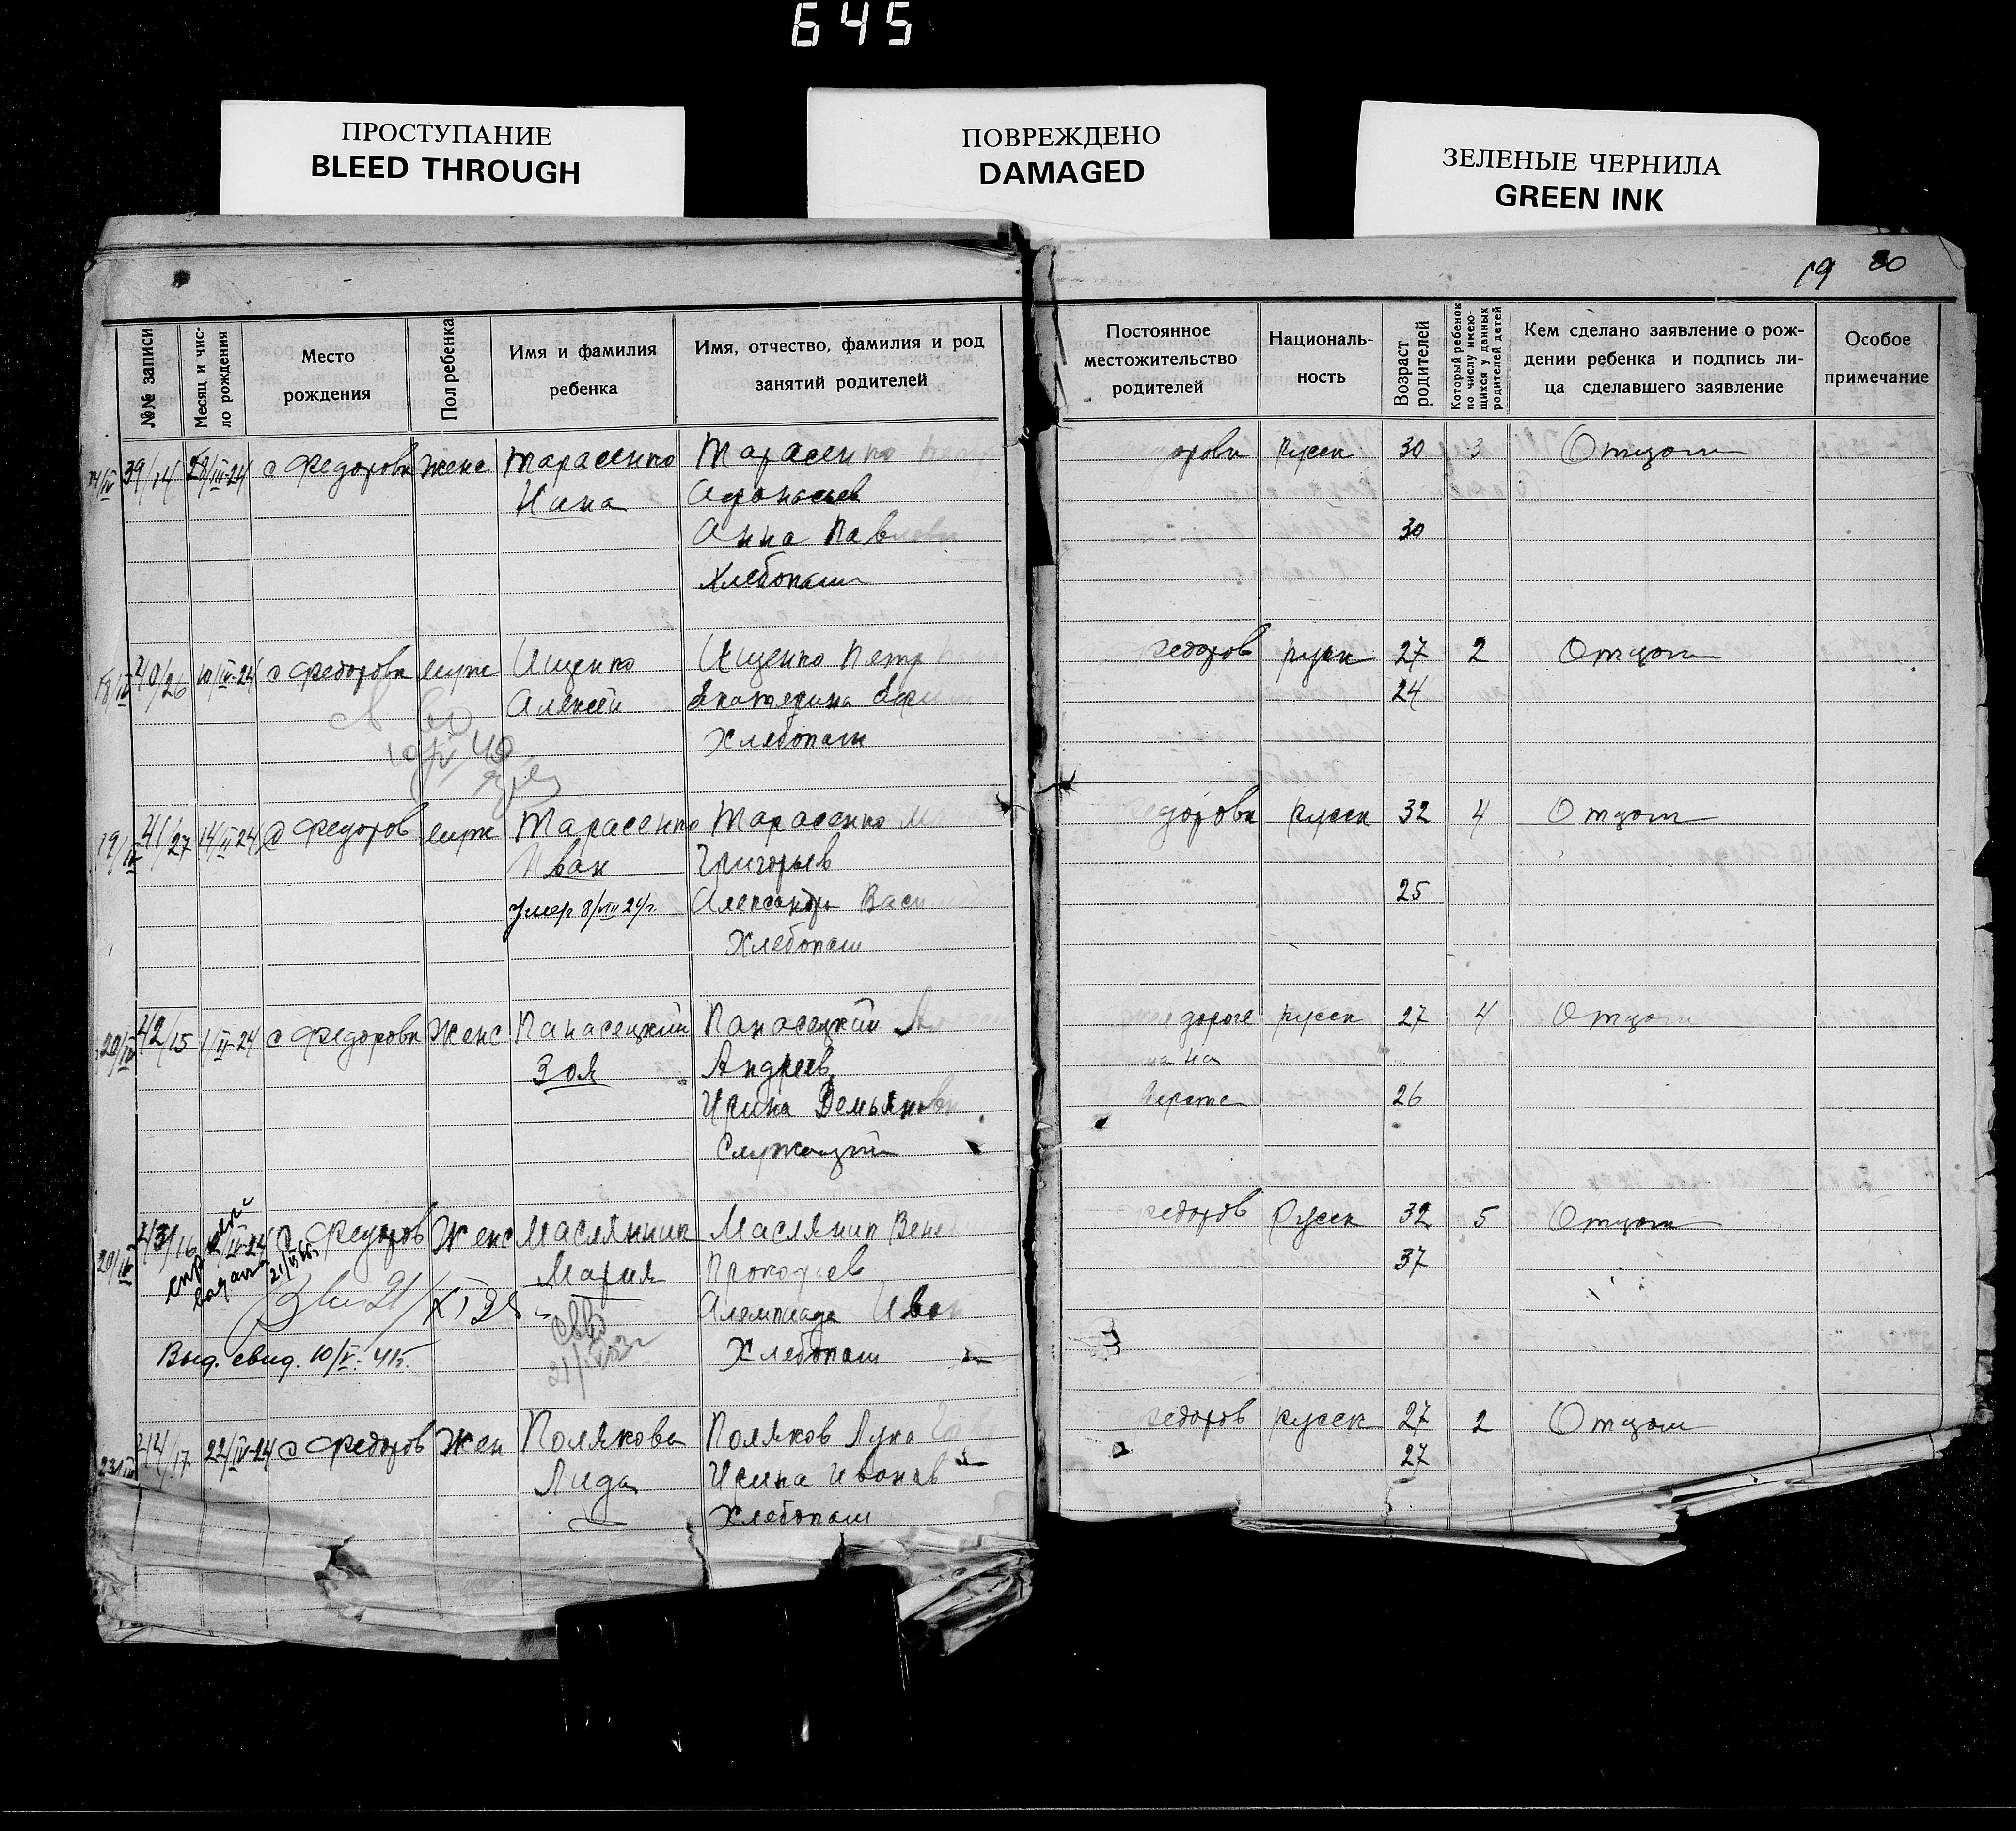 645
ПРОСТУПАНИЕ
BLEED THROUGH
ПОВРЕЖДЕНО
DAMAGED
ЗЕЛЕНЫЕ ЧЕРНИЛА
GREEN INK
19 20
№№ записи
Месяц и чис-
ло рождения
Место
рождения
Пол ребенка
Имя и фамилия
ребенка
Имя, отчество, фамилия и род
занятий родителей
Постоянное
местожительство
родителей
Националь-
ность
Возраст
родителей
Который ребенок
по числу имею-
щихся у данных
родителей детей
Кем сделано заявление о рож-
дении ребенка и подпись ли-
ца сделавшего заявление
Особое
примечание
14/IV 39/14 28/III-24 с Федоровк Женс Тарасенко Тарасенко оровк Русск 30 3 Отцом
Нина Афонасьев
Анна Павлов 30
Хлебопаш
18/IV 40/26 10/IV-24 с Федоровк муж Ищенко Ищенко Петр Федоров Русск 27 2 Отцом
Алексей Екатерина Еф 24
Хлебопаш
19/IV 41/27 14/II-24 с Федоров муж Тарасенко Тарасенко едоровк Русск 32 4 Отцом
Иван Григорьев
Умер 8/VIII 24 г. Александр Васи 25
Хлебопаш
20/IV 42/15 1/II-24 с Федоровк Женс Панасецкий Панасецкий дороге Русск 27 4 Отцом
Зоя Андреев
Ирина Демьяновн 26
Служащий
20/IV 43/16 2/IV-24 с Федоров Женс Маслянник Масляник Вене едоров Русск 32 5 Отцом
Мария Прокофьев 37
Алимпиада Иван
21/XI 35
Выд. свид. 10/V-41г. Хлебопаш
23/IV 44/17 22/IV-24 с Федоров Жен Полякова Поляков Лука Федоров Русск 27 2 Отцом
Лида Ирина Иванов 27
Хлебопаш